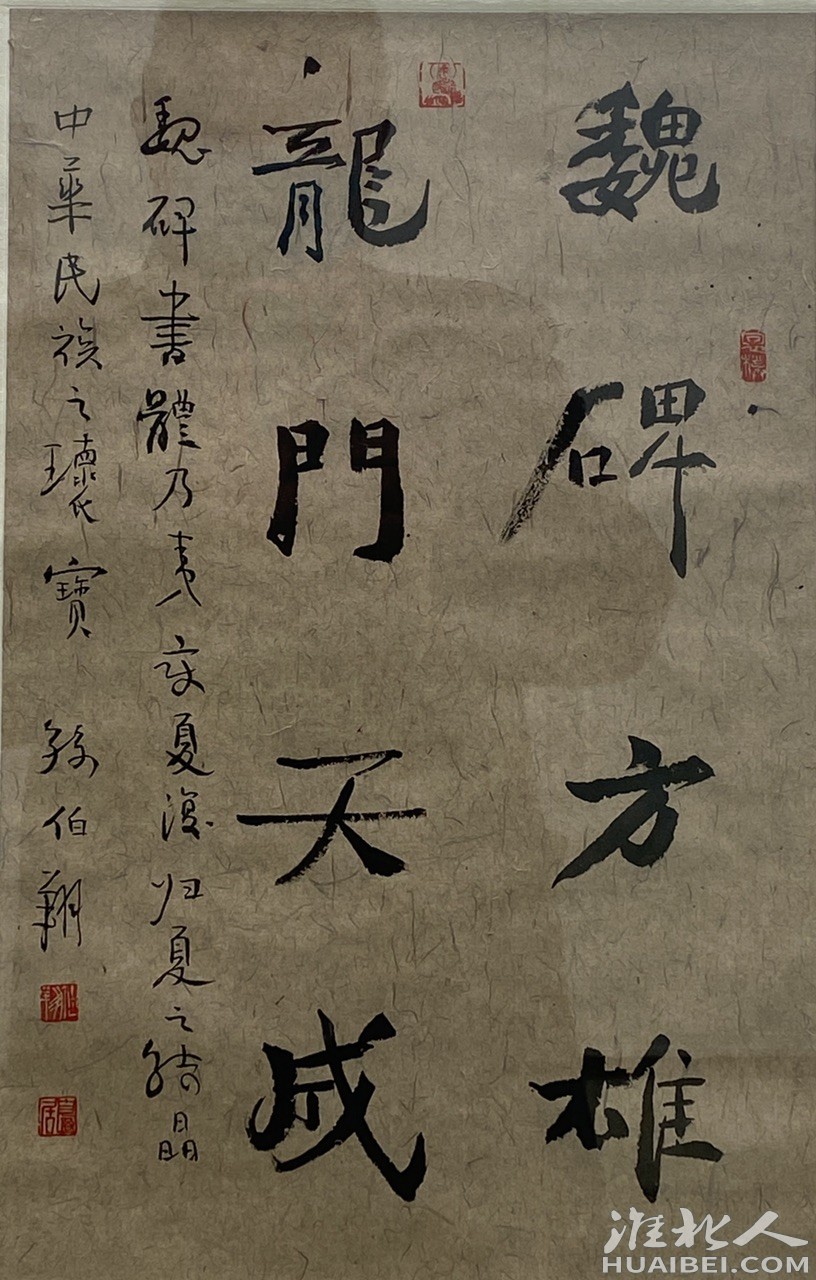 魏碑方雄
龍門天成
魏碑書體乃夷变夏復归夏之結晶
中華民族之瓌寶 孫伯翔
淮北人
HUAIBEI.COM